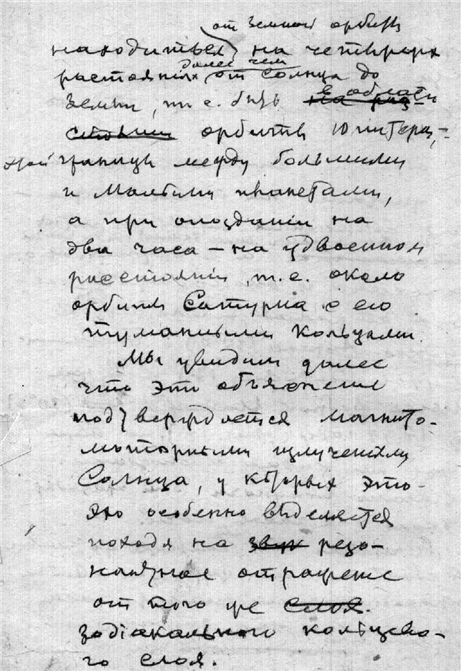 от земной орбиты
находиться на четырех
далее чем
растояніях от Солнца до
Земли, т.е. быть в области
орбиты Юпитера, –
границы между большими
и малыми планетами,
а при опоздании на
два часа – на удвоенном
расстояніи, т.е. около
орбиты Сатурна с его
туманными кольцами.
Мы увидим далее
что это объяснение
подтверждается магнито-
моторными излученіями
Солнца, у которых это
эхо особенно выделяется
походя на звук резо-
нансное отражение
от того же слоя
зодіакального кольцево-
го слоя.